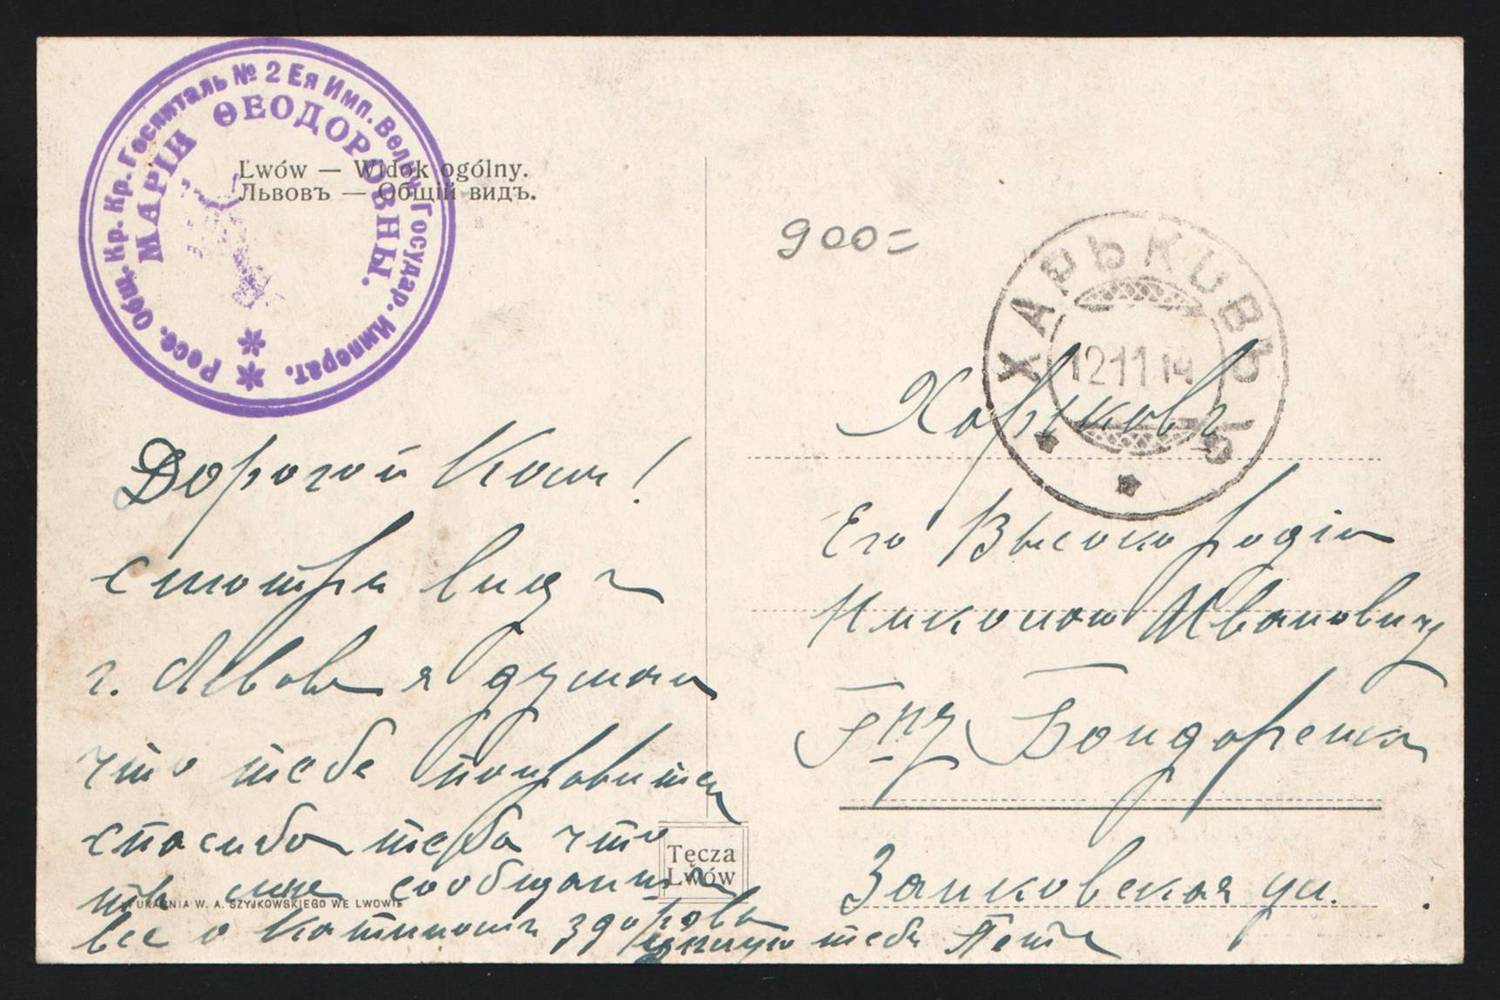 Росс. Общ. Кр. Кр. Госпиталь № 2 Ея Имп. Велич. Государ. Императ.
МАРІИ ѲЕОДОРОВНЫ.
Lwów — Widok ogólny.
Львовъ — Общій видъ.
900=
ХАРЬКОВЪ
12 11 14
Дорогой Коля!
смотри видъ
г. Львова я думаю
что тебе понравится
спасибо тебе что
ты мне сообщаешь
все о Катиномъ здоровье
целую тебя Петя
Tęcza
Lwów
DRUKARNIA W. A. SZYJKOWSKIEGO WE LWOWIE
Харьковъ
Его Высокородію
Николаю Ивановичу
Гну Бондаренко
Заиковская ул.